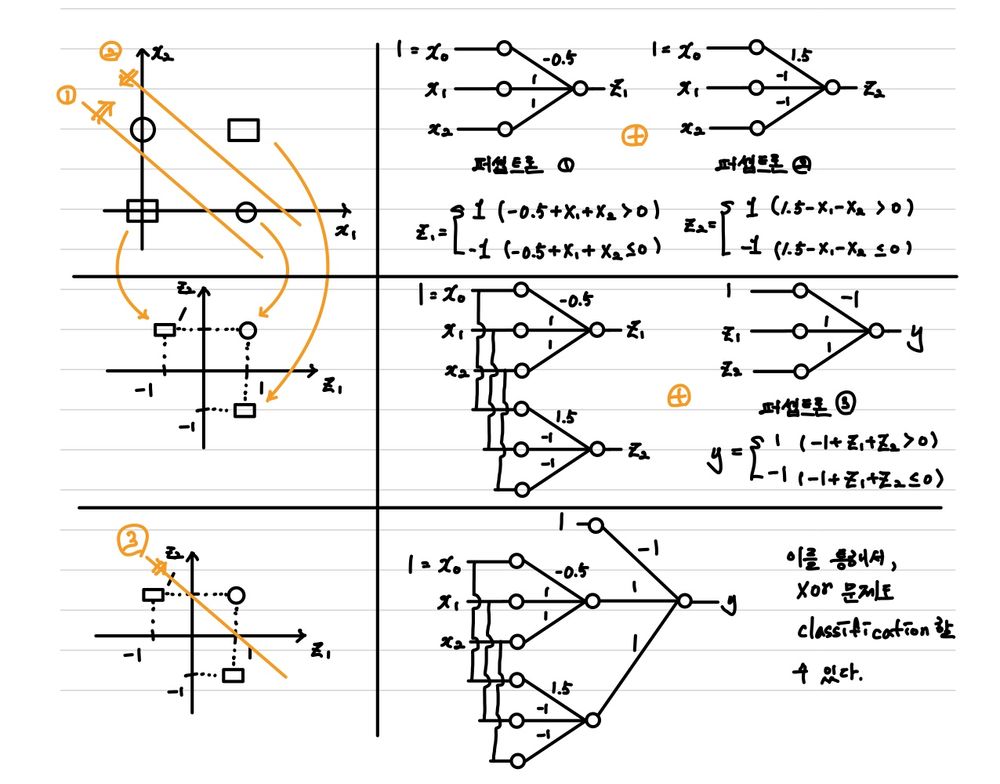 ② x₂
①
x₁
1 = x₀ -0.5
x₁ 1 z₁
x₂ 1
퍼셉트론 ①
z₁ = { 1 (-0.5+x₁+x₂>0)
-1 (-0.5+x₁+x₂≤0)
⊕
1 = x₀ 1.5
x₁ -1 z₂
x₂ -1
퍼셉트론 ②
z₂ = { 1 (1.5-x₁-x₂>0)
-1 (1.5-x₁-x₂≤0)
z₂
1
-1 1 z₁
-1
1 = x₀ -0.5
x₁ 1 z₁
x₂ 1
1.5
-1 z₂
-1
⊕
1 -1
z₁ 1 y
z₂ 1
퍼셉트론 ③
y = { 1 (-1+z₁+z₂>0)
-1 (-1+z₁+z₂≤0)
③
z₂
1
-1 1 z₁
-1
1 -1
1 = x₀ -0.5
x₁ 1 1 y
x₂ 1
1
1.5
-1
-1
이를 통해서,
xor 문제도
classification 할
수 있다.